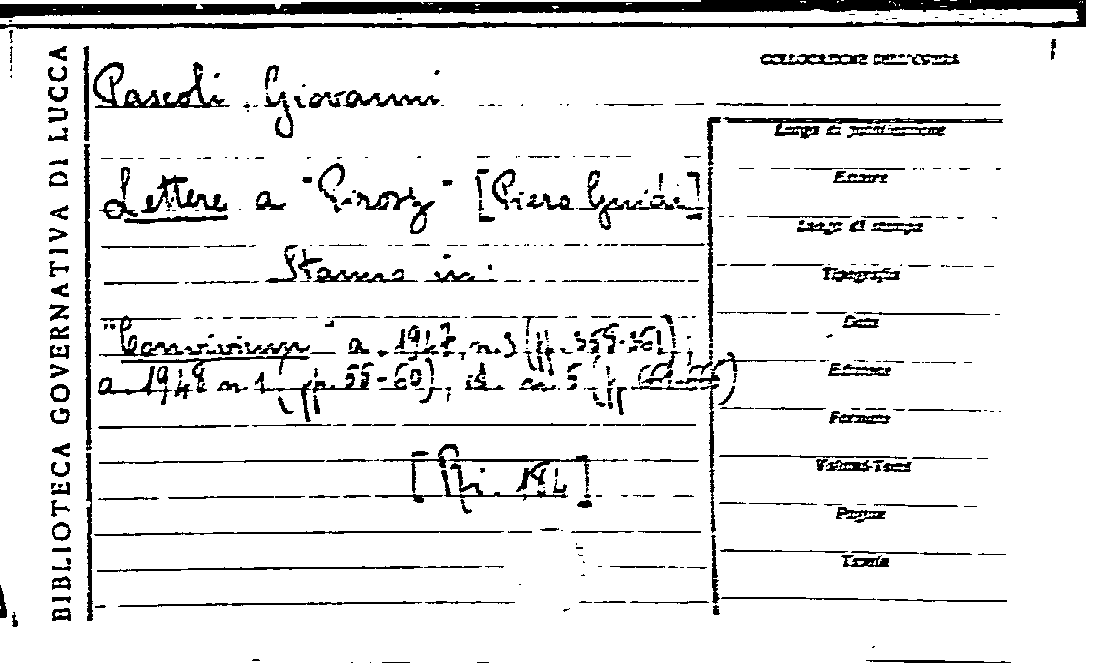 BIBLIOTECA GOVERNATIVA DI LUCCA
COLLOCAZIONE DELL'OPERA
Pascoli, Giovanni
Lettere a " " [Piero Guidi]
Stanno in:
"Convivium" a. 1947, n. 3 (pp. 359-361);
a. 1948 n. 1 (pp. 55-60), id. n. 5 (pp.
Luogo di pubblicazione
Editore
Luogo di stampa
Tipografia
Data
Edizione
Formato
Volumi-Tomi
Pagine
Tavole